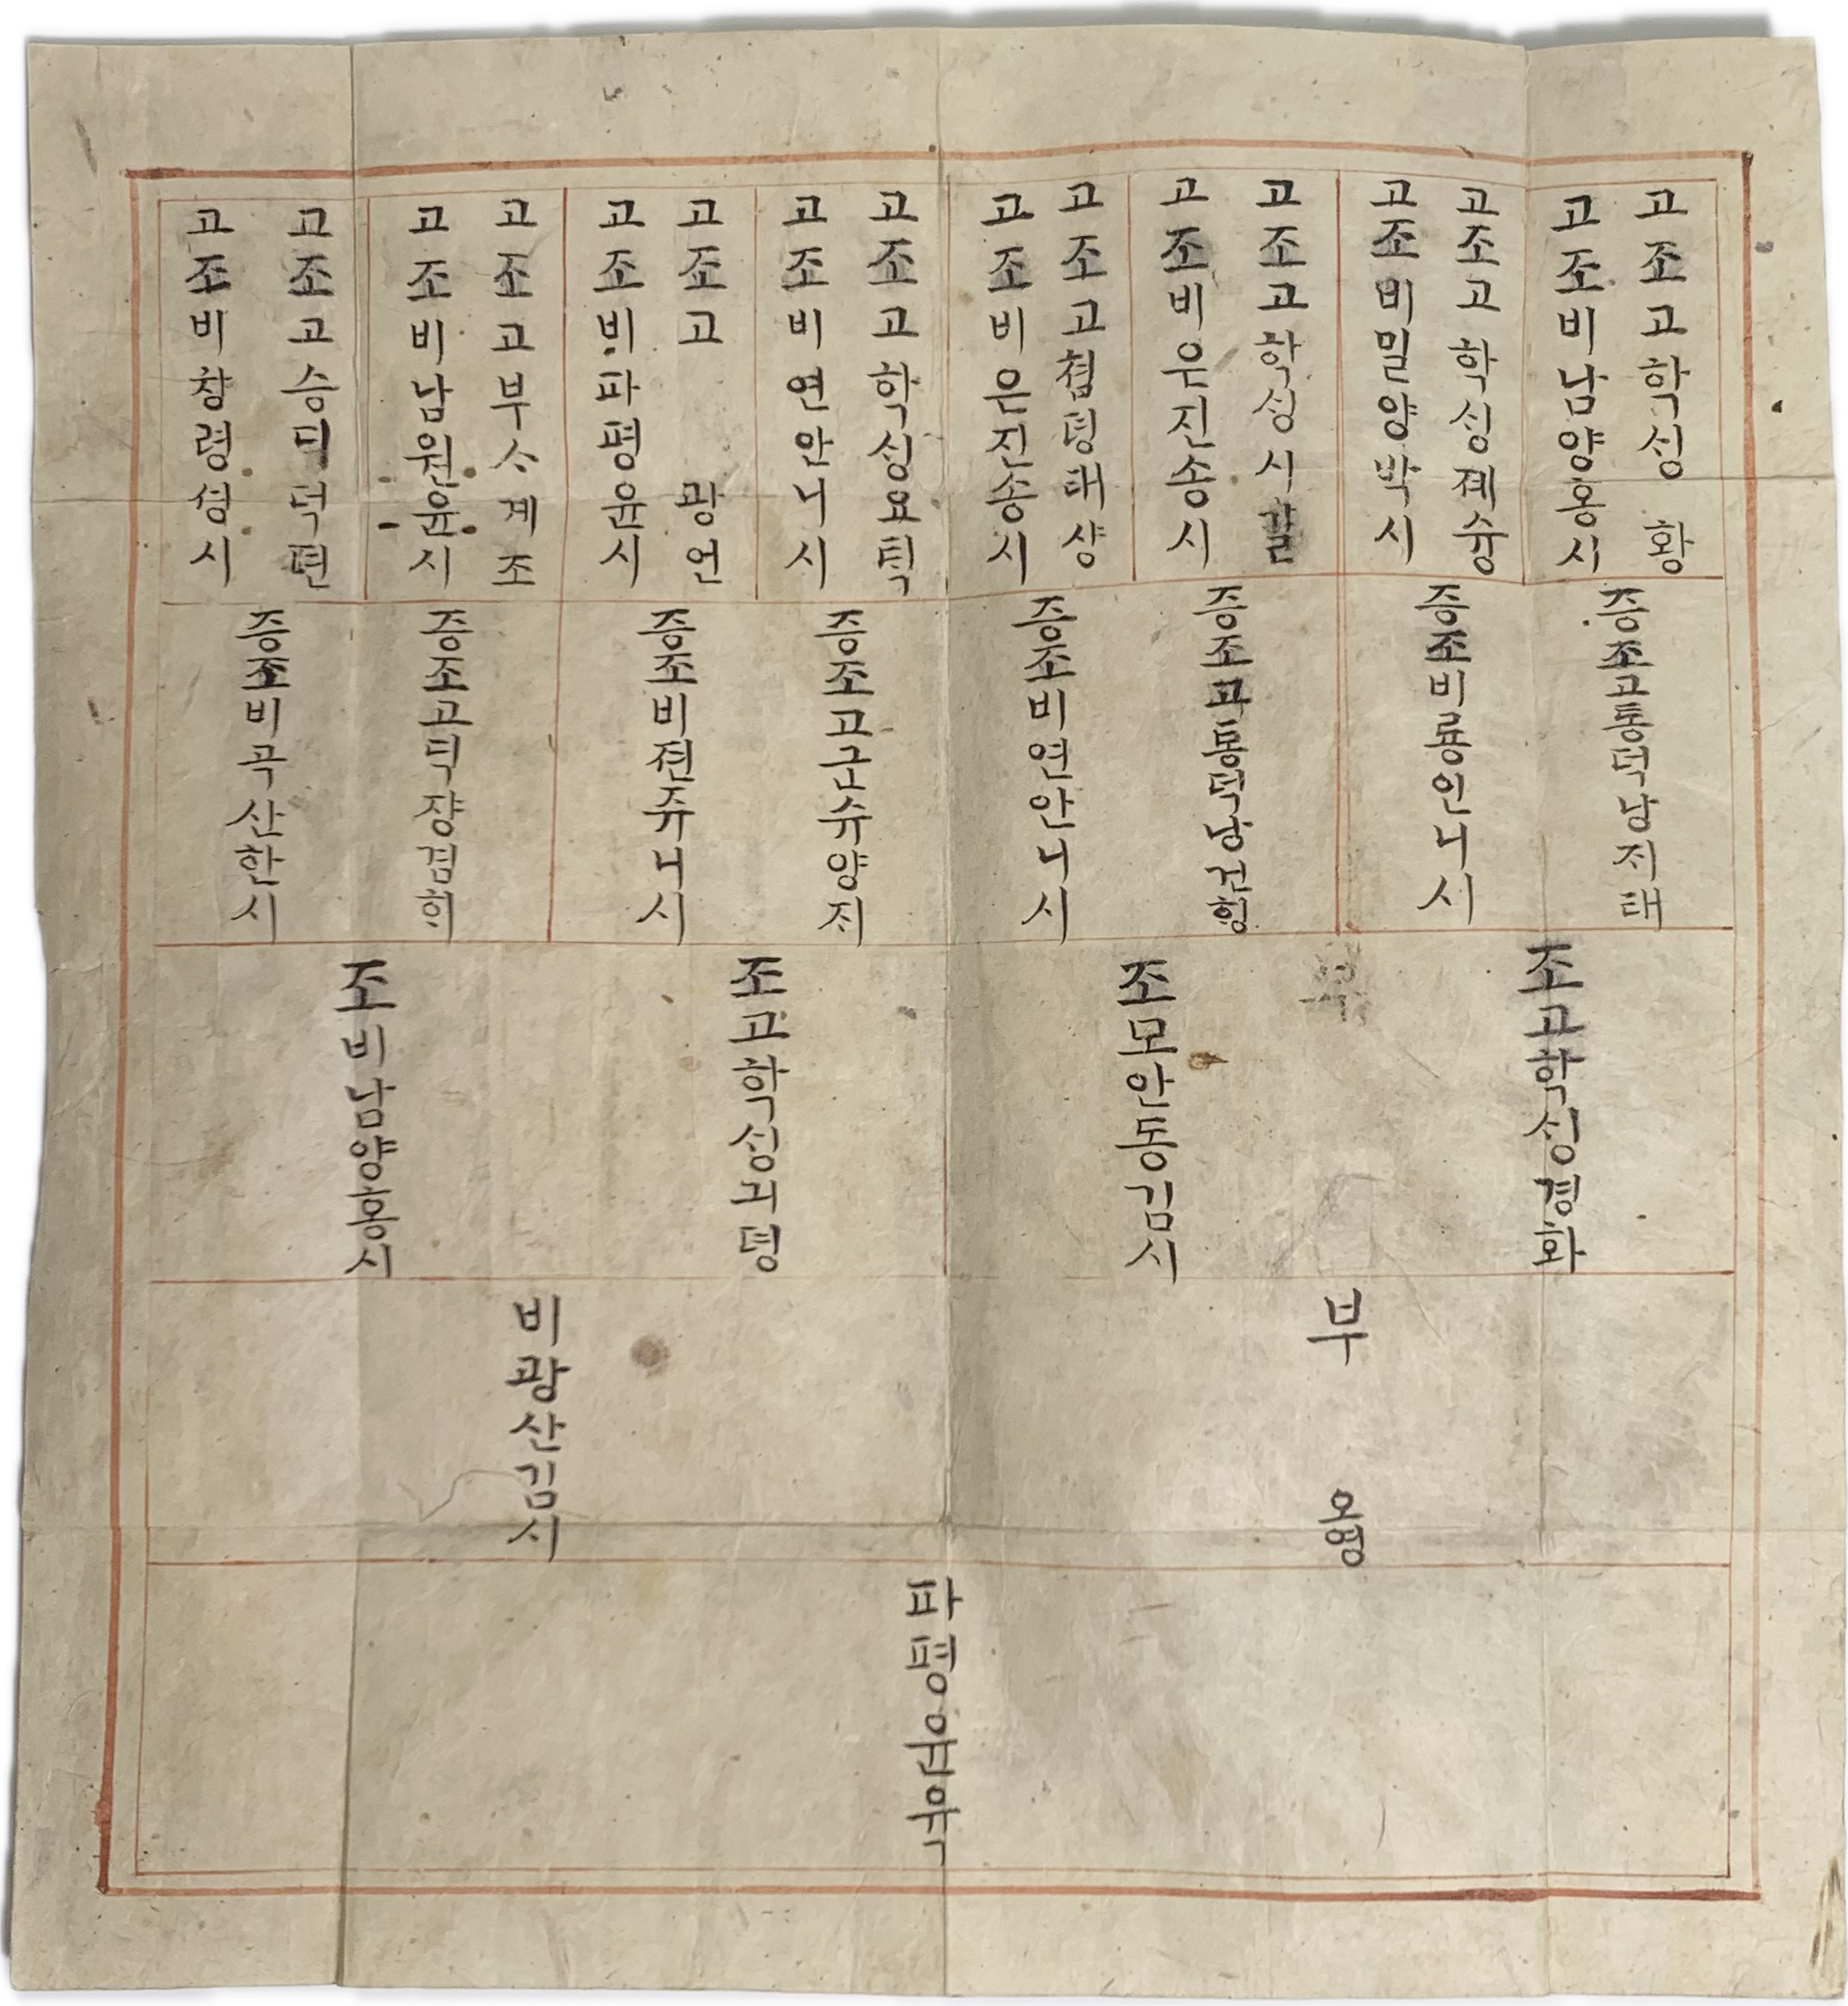 고조고학성 황
고조비남양홍시
고조고학성졔슝
고조비밀양박시
고조고학성시갈
고조비은진송시
고조고쳡뎡태샹
고조비은진송시
고조고학성요틱
고조비연안니시
고조고 광언
고조비파평윤시
고조고부스계조
고조비남원윤시
고조고승틱덕편
고조비창령셩시
증조고통덕낭지태
증조비룡인니시
증조고통덕낭건헝
증조비연안니시
증조고군슈양지
증조비젼쥬니시
증조고틱쟝겸히
증조비곡산한시
조고학성경화
조모안동김시
조고학성긔뎡
조비남양홍시
부 오영
비광산김시
파평윤권육